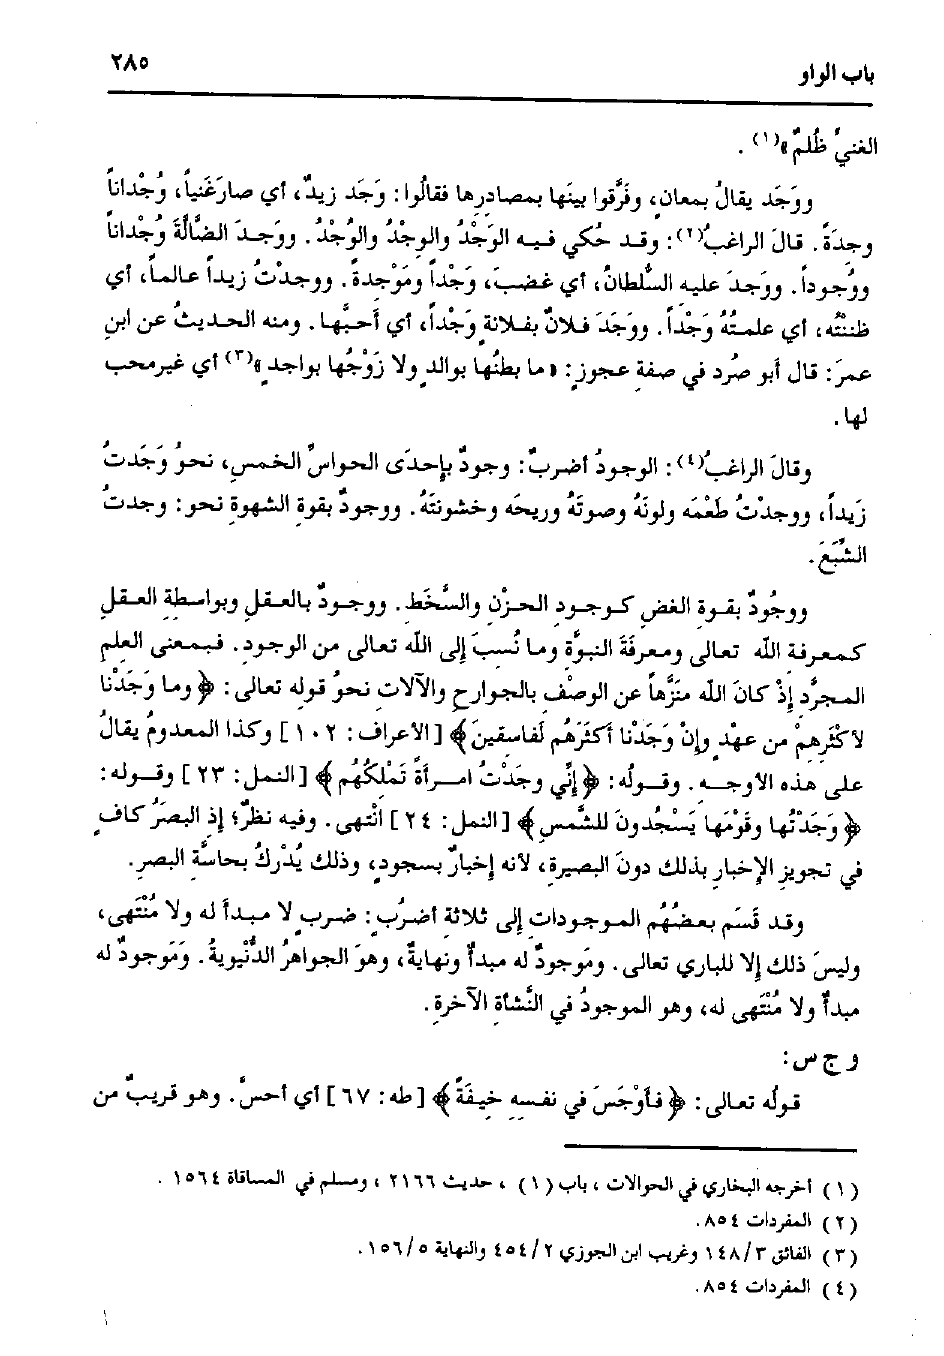 باب الواو
٢٨٥
الغنيِّ ظُلمٌ»(١) .
ووَجَد يقالُ بمعانٍ، وفَرَّقوا بينَها بمصادرِها فقالُوا: وَجَد زيدٌ، أي صارَغنياً، وُجْداناً
وجِدَةً. قالَ الراغبُ(٢): وقد حُكي فيه الوَجْدُ والوِجْدُ والوُجْدُ. ووَجدَ الضَّالَّةَ وُجْداناً
ووُجُوداً. ووَجدَ عليه السُّلطانُ، أي غضبَ، وَجْداً ومَوْجِدةً. ووجدْتُ زيداً عالماً، أي
ظننْتُه، أي علمتُهُ وَجْداً. ووَجَدَ فلانٌ بفلانةٍ وَجْداً، أي أحبَّها. ومنه الحديثُ عن ابنِ
عمرَ: قال أبو صُرد في صفةِ عجوزٍ: «ما بطنُها بوالدٍ ولا زَوْجُها بواجدٍ»(٣) أي غيرمحب
لها.
وقالَ الراغبُ(٤): الوجودُ أضربٌ: وجودٌ بإحدَى الحواسِّ الخمسِ، نحوُ وَجَدتُ
زَيداً، ووجدْتُ طَعْمَه ولونَهُ وصوتَهُ وريحَه وخشونتَهُ. ووجودٌ بقوة الشهوةِ نحو: وجدتُ
الشِّبَعَ.
ووجُودٌ بقوةِ الغضِ كوجودِ الحزْنِ والسُّخَطِ. ووجودٌ بالعقلِ وبواسطةِ العقلِ
كمعرفة الله تعالى ومعرفَةِ النبوَّة وما نُسبَ إلى الله تعالى من الوجودِ. فبمعنى العلمِ
المجرَّدِ إذْ كانَ الله منَزَّهاً عن الوصْفِ بالجوارحِ والآلات نحوُ قوله تعالى: ﴿وما وَجَدْنا
لأكثَرِهِمْ من عهْدٍ وإنْ وَجَدْنا أكثَرَهُم لَفاسقينَ﴾ [الأعراف: ١٠٢] وكذا المعدومُ يقالُ
على هذه الأوجه. وقولُه: ﴿إنِّي وجَدْتُ امرأةً تَمْلِكُهُم﴾ [النمل: ٢٣] وقوله:
﴿وَجَدْتُها وقَوْمَها يَسْجُدونَ للشَّمسِ﴾ [النمل: ٢٤] انْتهى. وفيه نظرٌ؛ إذِ البصَرُ كافٍ
في تجويزِ الإخبارِ بذلك دونَ البصيرةِ، لأنه إخبارٌ بسجودٍ، وذلك يُدْركُ بحاسَّةِ البصرِ.
وقد قَسَم بعضُهُم الموجوداتِ إلى ثلاثة أضرُبٍ: ضربٍ لا مبدأ له ولا مُنْتَهى،
وليسَ ذلك إلا للباري تعالى. ومَوجودٌ له مبدأٌ ونهايةٌ، وهوَ الجواهرُ الدُّنْيويةُ. وَمَوجودٌ له
مبدأٌ ولا مُنْتَهى له، وهو الموجودُ في النَّشأةِ الآخرةِ.
و ج س:
قولُه تعالى: ﴿فأوْجَسَ في نفسِهِ خيفَةً﴾ [طه: ٦٧] أي أحسَّ. وهو قريبٌ من
(١) أخرجه البخاري في الحوالات ، باب (١) ، حديث ٢١٦٦ ، ومسلم في المساقاة ١٥٦٤ .
(٢) المفردات ٨٥٤.
(٣) الفائق ١٤٨/٣ وغريب ابن الجوزي ٤٥٤/٢ والنهاية ١٥٦/٥.
(٤) المفردات ٨٥٤.